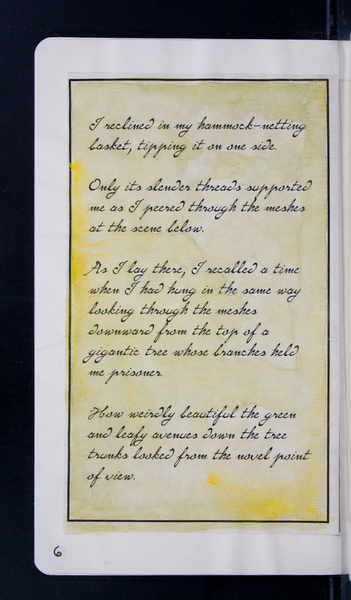 I reclined in my hammock-netting
basket, tipping it on one side.
Only its slender threads supported
me as I peered through the meshes
at the scene below.
As I lay there, I recalled a time
when I had hung in the same way
looking through the meshes
downward from the top of a
gigantic tree whose branches held
me prisoner.
How weirdly beautiful the green
and leafy avenues down the tree
trunks looked from the novel point
of view.
6